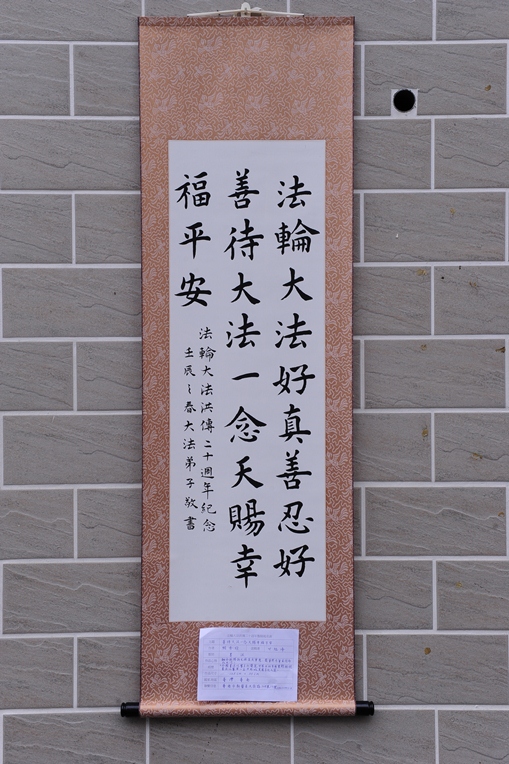 法輪大法好真善忍好
善待大法一念天賜幸
福平安
法輪大法洪傳二十週年紀念
壬辰之春大法弟子敬書